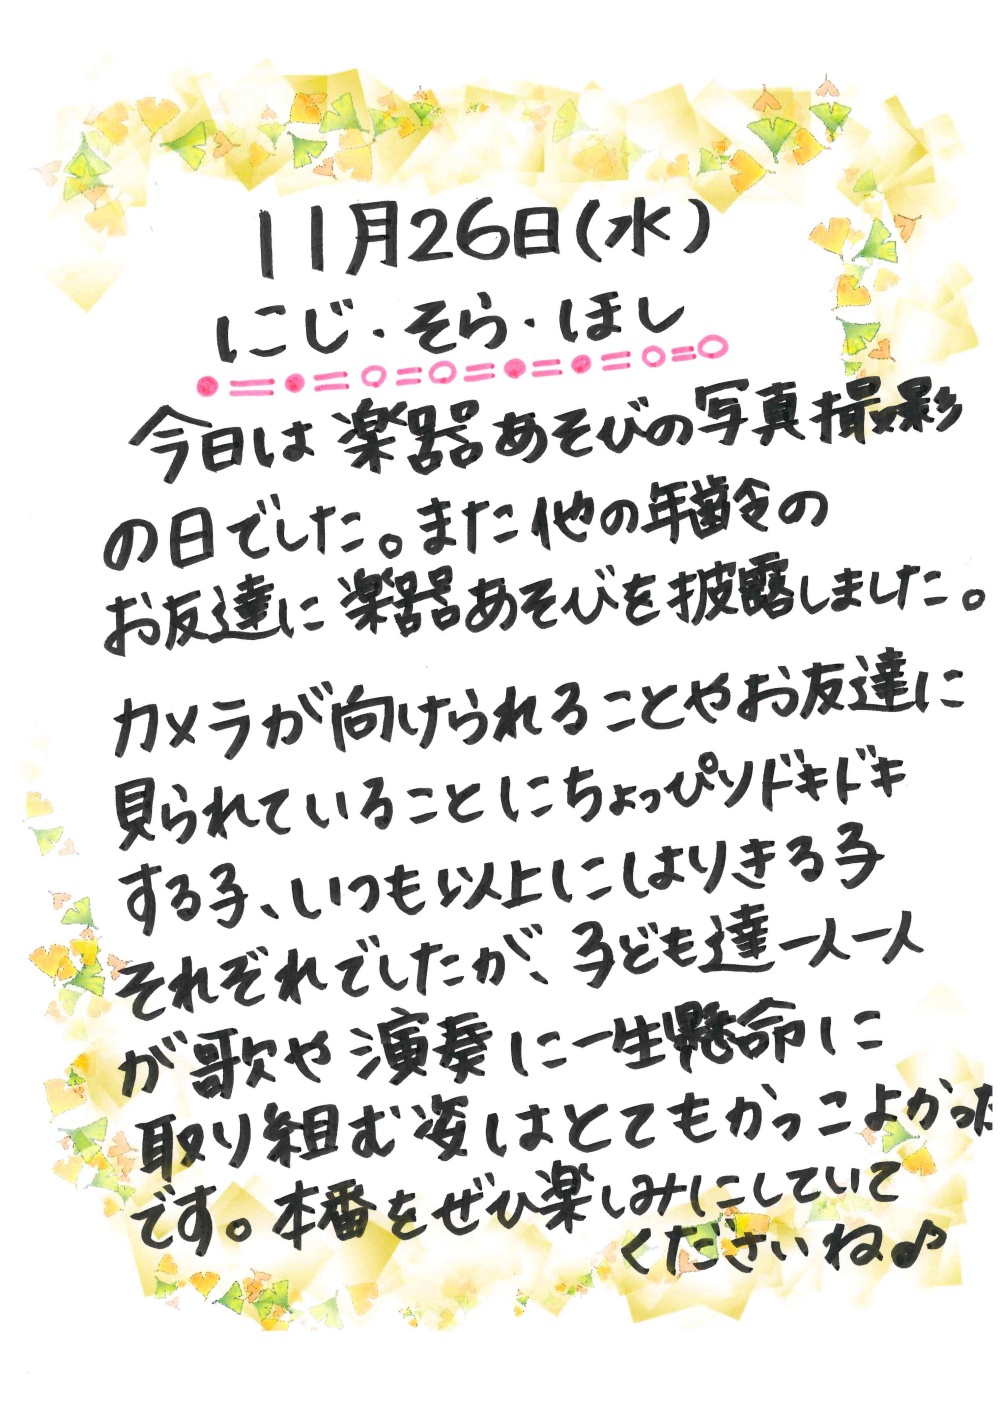 11月26日(水)
にじ・そら・ほし
今日は楽器あそびの写真撮影
の日でした。また他の年齢の
お友達に楽器あそびを披露しました。
カメラが向けられることやお友達に
見られていることにちょっぴりドキドキ
する子、いつも以上にはりきる子
それぞれでしたが、子ども達一人一人
が歌や演奏に一生懸命に
取り組む姿はとてもかっこよかった
です。本番をぜひ楽しみにしていて
くださいね♪